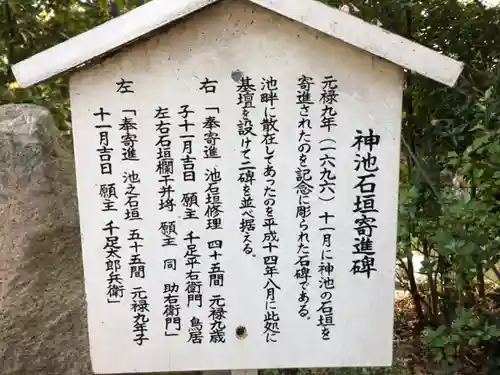 神池石垣寄進碑
元禄九年（一六九六）十一月に神池の石垣を
寄進されたのを記念に彫られた石碑である。
池畔に散在してあったのを平成十四年八月に此処に
基壇を設けて二碑を並べ据える。
右「奉寄進 池石垣修理 四十五間 元禄九歳
子十一月吉日 願主 千足平右衛門 鳥居
左右石垣欄干共拵 願主 同 助右衛門」
左「奉寄進 池之石垣 五十五間 元禄九年子
十一月吉日 願主 千足太郎兵衛」